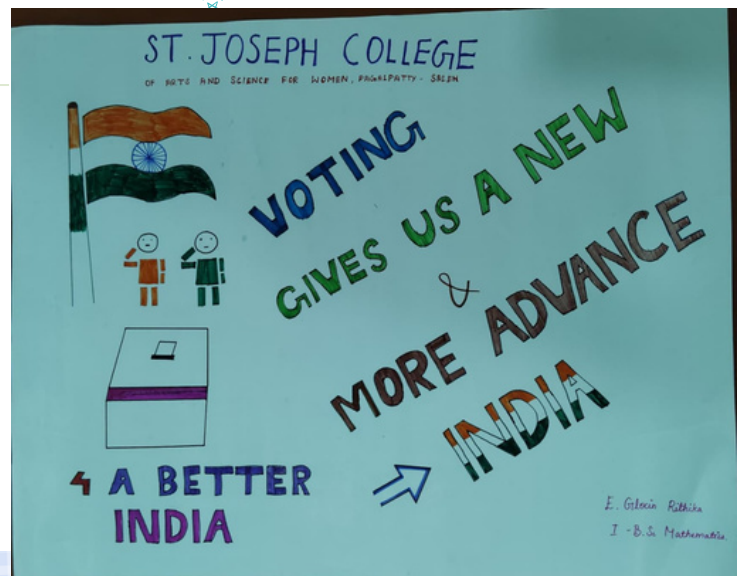 ST. JOSEPH COLLEGE
OF ARTS AND SCIENCE FOR WOMEN, PAGALPATTY - SALEM
VOTING
GIVES US A NEW
&
MORE ADVANCE
INDIA
4 A BETTER
INDIA
E. Gloria Rithika
I - B.Sc Mathematics.